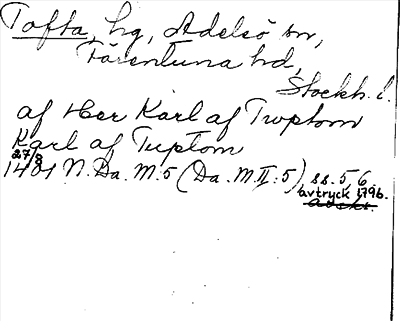 Tofta, hg, Adelsö sn,
Färentuna hd,
Stockh. l.
af Her Karl af Twptom
Karl af Tuptom
27/8
1401 N. Da. M. 5 (Da. M. II: 5) ss. 5, 6
avtryck 1796.